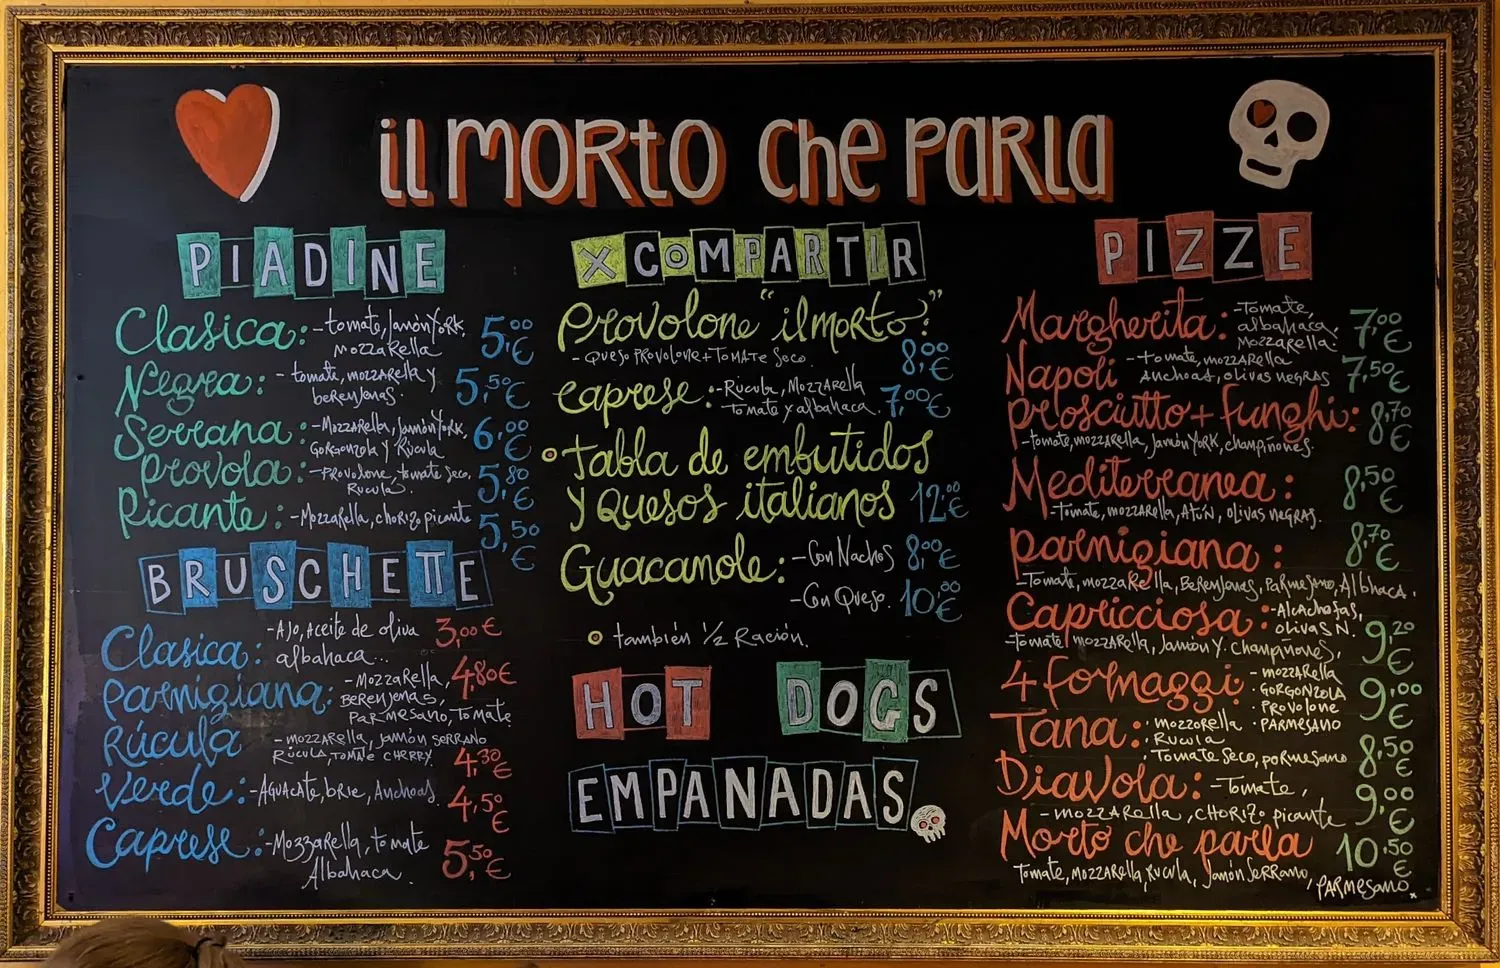 il MORTO che PARLA
PIADINE
Clasica: -tomate, Jamón York, 5,00€
Mozzarella
Negra: - tomate, mozzarella y 5,50€
berenjenas.
Serrana: -Mozzarella, Jamón York, 6,00€
Gorgonzola y Rúcula
Provola: -Provolone, tomate seco, 5,80€
Rucula.
Picante: -Mozzarella, chorizo picante 5,50€
BRUSCHETTE
Clasica: -Ajo, Aceite de oliva 3,00€
albahaca...
Parmigiana: -Mozzarella, 4,80€
Berenjenas,
Parmesano, Tomate
Rúcula -mozzarella, jamón serrano
Rúcula, tomate cherry 4,30€
Verde: -Aguacate, brie, Anchoas. 4,50€
Caprese: -Mozzarella, tomate 5,50€
Albahaca.
X COMPARTIR
Provolone "il morto":
- Queso Provolone + Tomate Seco 8,00€
Caprese: -Rúcula, Mozzarella
Tomate y albahaca. 7,00€
Tabla de embutidos
y Quesos italianos 12,00€
Guacamole: -Con Nachos 8,00€
-Con Queso. 10,00€
también 1/2 Ración.
HOT DOGS
EMPANADAS
PIZZE
Margherita: -Tomate, 7,00€
albahaca,
Mozzarella.
Napoli -tomate, mozzarella 7,50€
Anchoas, olivas negras
Prosciutto + funghi: 8,70€
-tomate, mozzarella, Jamón York, champiñones.
Mediterranea: 8,50€
-Tomate, mozzarella, Atún, olivas negras.
Parmigiana: 8,70€
-Tomate, mozzarella, Berenjenas, Parmesano, Albahaca.
Capricciosa: -Alcachofas,
olivas N. 9,20€
-Tomate, mozzarella, Jamón Y. Champiñones,
4 formaggi -mozzarella 9,00€
·Gorgonzola
·Provolone
·Parmesano
Tana: ·mozzarella 8,50€
·Rucula
·Tomate seco, parmesano
Diavola: -Tomate, 9,00€
-mozzarella, chorizo picante
Morto che parla 10,50€
Tomate, Mozzarella, Rucula, Jamón Serrano, Parmesano.